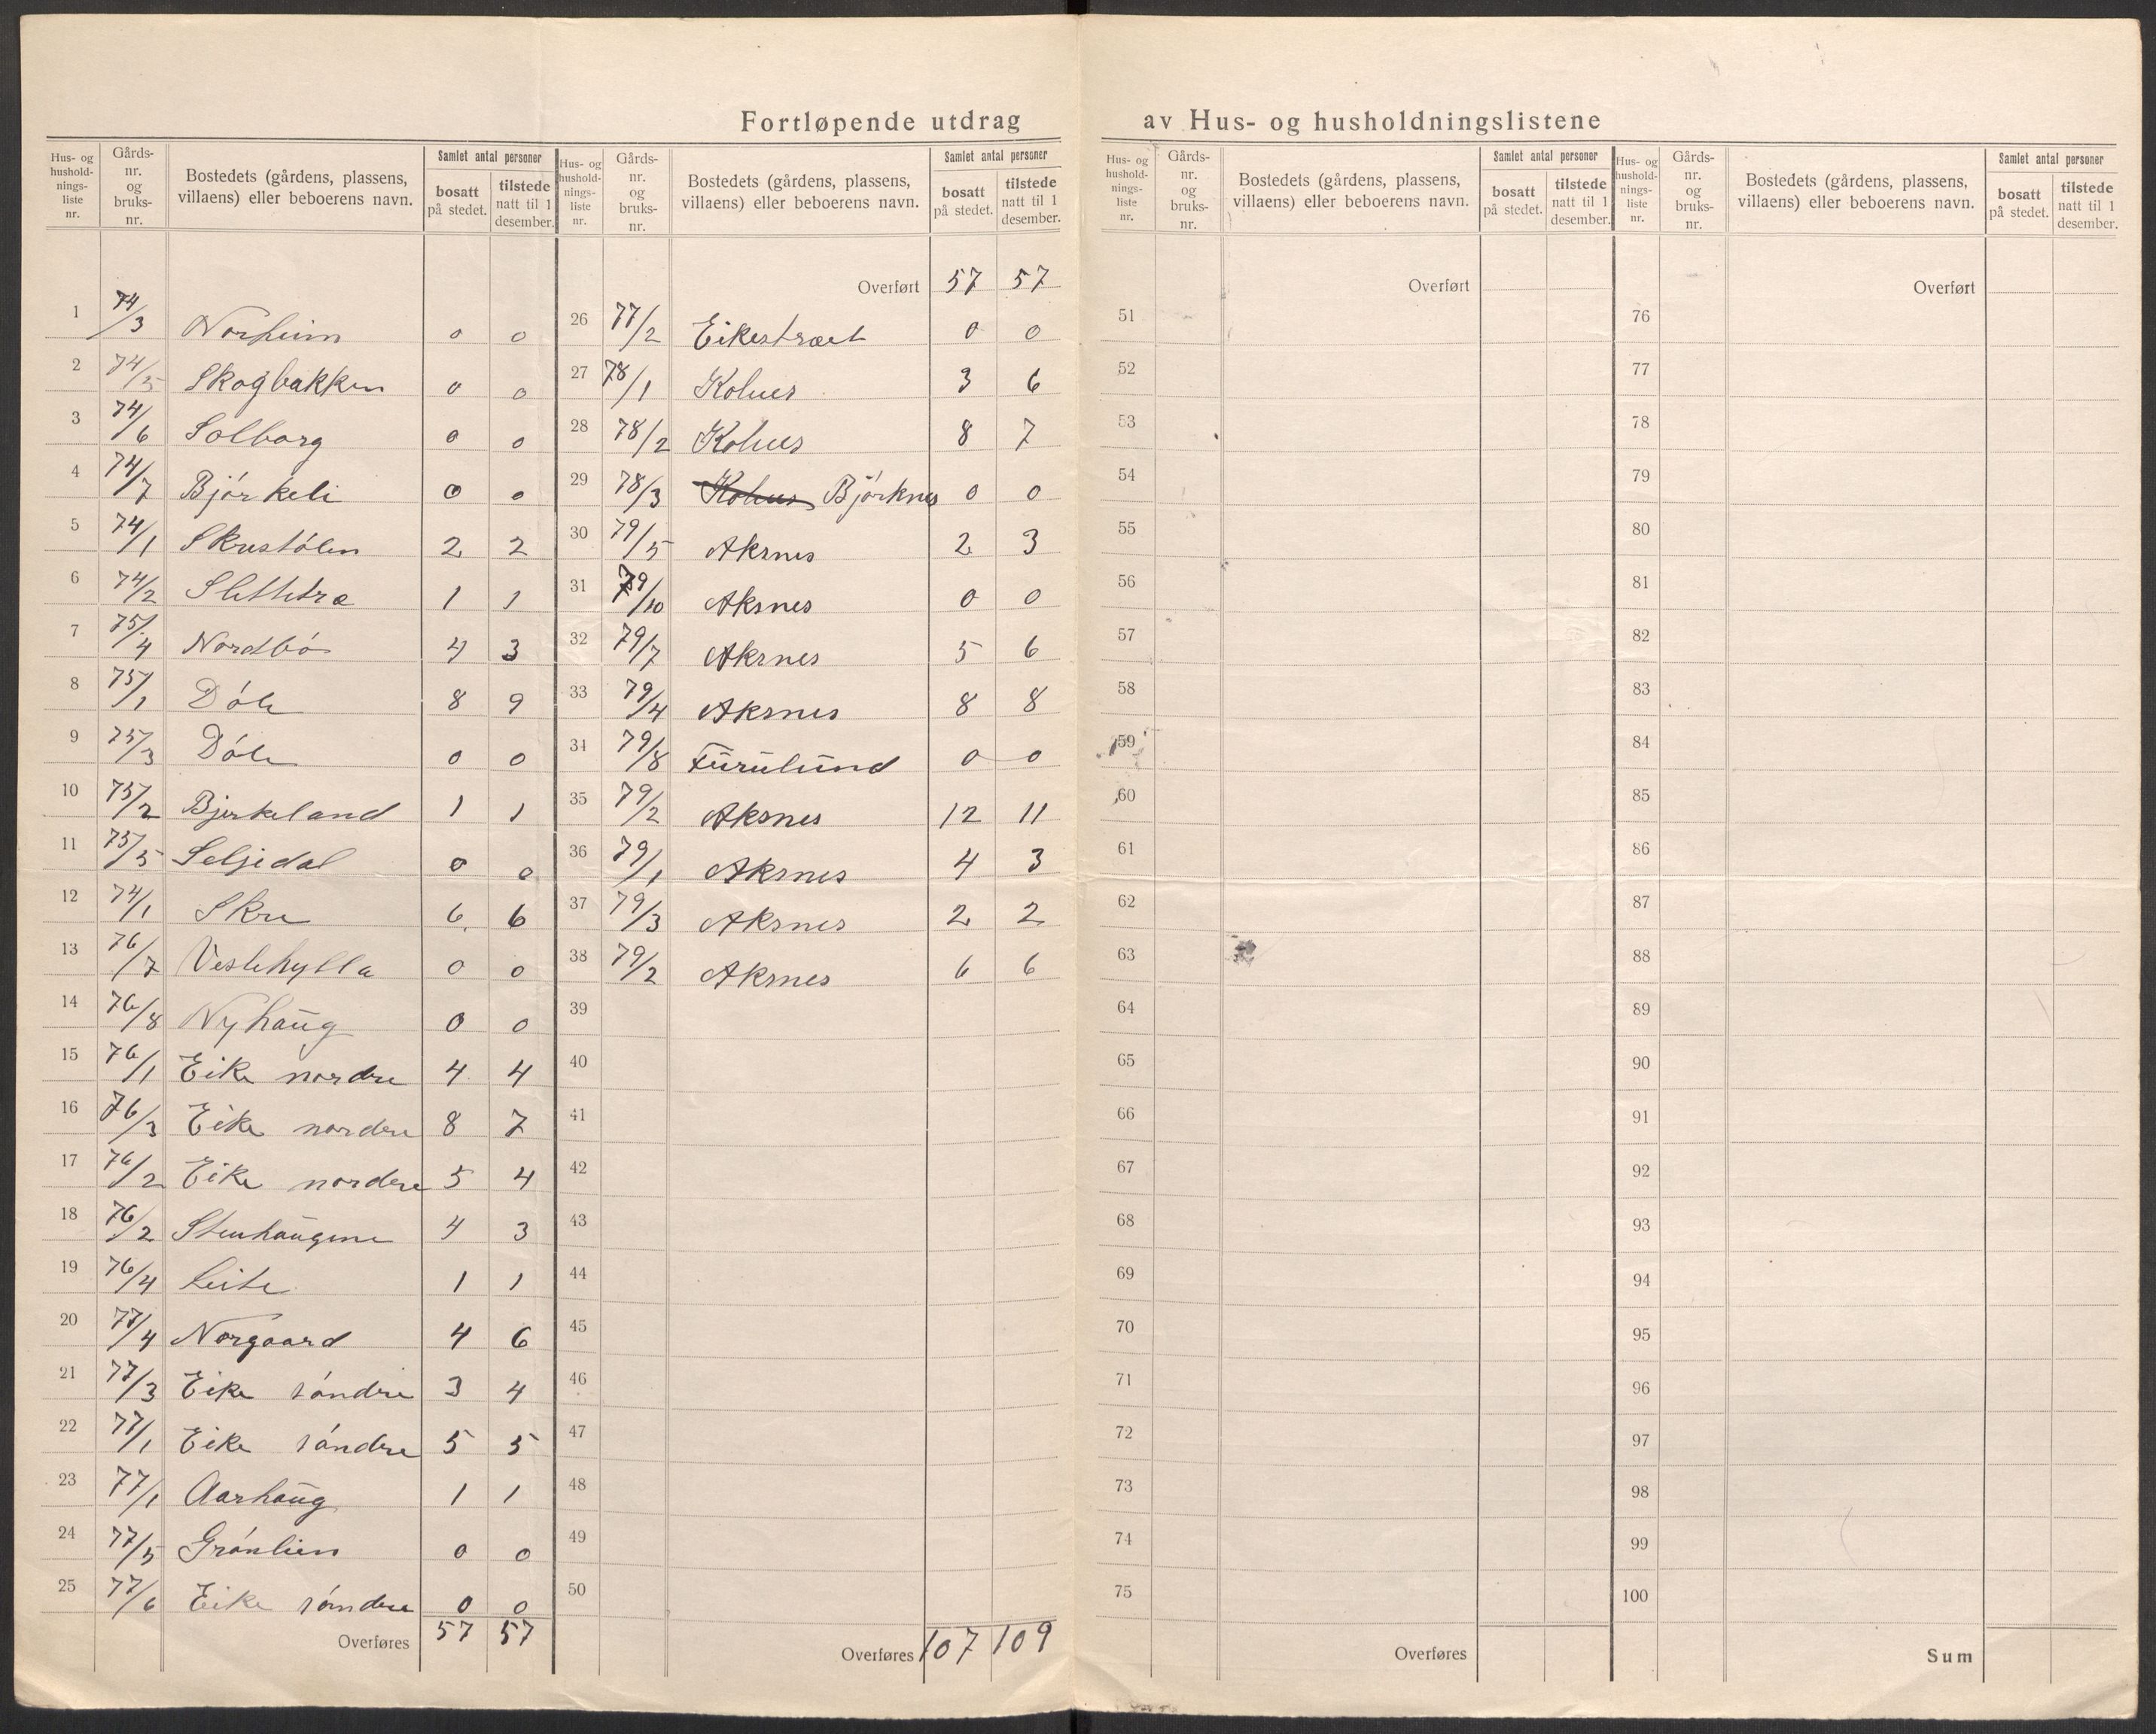 Fortløpende utdrag av Hus- og husholdningslistene
Hus- og husholdningsliste nr. | Gårds-nr. og bruks-nr. | Bostedets (gårdens, plassens, villaens) eller beboerens navn. | Samlet antal personer bosatt på stedet. | tilstede natt til 1 desember.
1 74/3 Norheim 0 0
2 74/5 Skogbakken 0 0
3 74/6 Solborg 0 0
4 74/7 Bjórkeli 0 0
5 74/1 Skrustólen 2 2
6 74/2 Slettetræ 1 1
7 75/4 Nordbó 4 3
8 75/1 Dóle 8 9
9 75/3 Dóle 0 0
10 75/2 Bjerkeland 1 1
11 75/5 Seljedal 0 0
12 74/1 Skre 6 6
13 76/7 Veslehylla 0 0
14 76/8 Nyhaug 0 0
15 76/1 Eike nordre 4 4
16 76/3 Eike nordre 8 7
17 76/2 Eike nordre 5 4
18 76/2 Stenhaugene 4 3
19 76/4 Leite 1 1
20 77/4 Norgaard 4 6
21 77/3 Eike sóndre 3 4
22 77/1 Eike sóndre 5 5
23 77/1 Aarhaug 1 1
24 77/5 Grónlien 0 0
25 77/6 Eike sóndre 0 0
Overføres 57 57
Hus- og husholdningsliste nr. | Gårds-nr. og bruks-nr. | Bostedets (gårdens, plassens, villaens) eller beboerens navn. | Samlet antal personer bosatt på stedet. | tilstede natt til 1 desember.
Overført 57 57
26 77/2 Eikestræet 0 0
27 78/1 Kolnes 3 6
28 78/2 Kolnes 8 7
29 78/3 Kolnes Bjórknes 0 0
30 79/5 Aksnes 2 3
31 79/10 Aksnes 0 0
32 79/7 Aksnes 5 6
33 79/4 Aksnes 8 8
34 79/8 Furulund 0 0
35 79/2 Aksnes 12 11
36 79/1 Aksnes 4 3
37 79/3 Aksnes 2 2
38 79/2 Aksnes 6 6
39
40
41
42
43
44
45
46
47
48
49
50
Overføres 107 109
Hus- og husholdningsliste nr. | Gårds-nr. og bruks-nr. | Bostedets (gårdens, plassens, villaens) eller beboerens navn. | Samlet antal personer bosatt på stedet. | tilstede natt til 1 desember.
Overført
51
52
53
54
55
56
57
58
59
60
61
62
63
64
65
66
67
68
69
70
71
72
73
74
75
Overføres
Hus- og husholdningsliste nr. | Gårds-nr. og bruks-nr. | Bostedets (gårdens, plassens, villaens) eller beboerens navn. | Samlet antal personer bosatt på stedet. | tilstede natt til 1 desember.
Overført
76
77
78
79
80
81
82
83
84
85
86
87
88
89
90
91
92
93
94
95
96
97
98
99
100
Sum